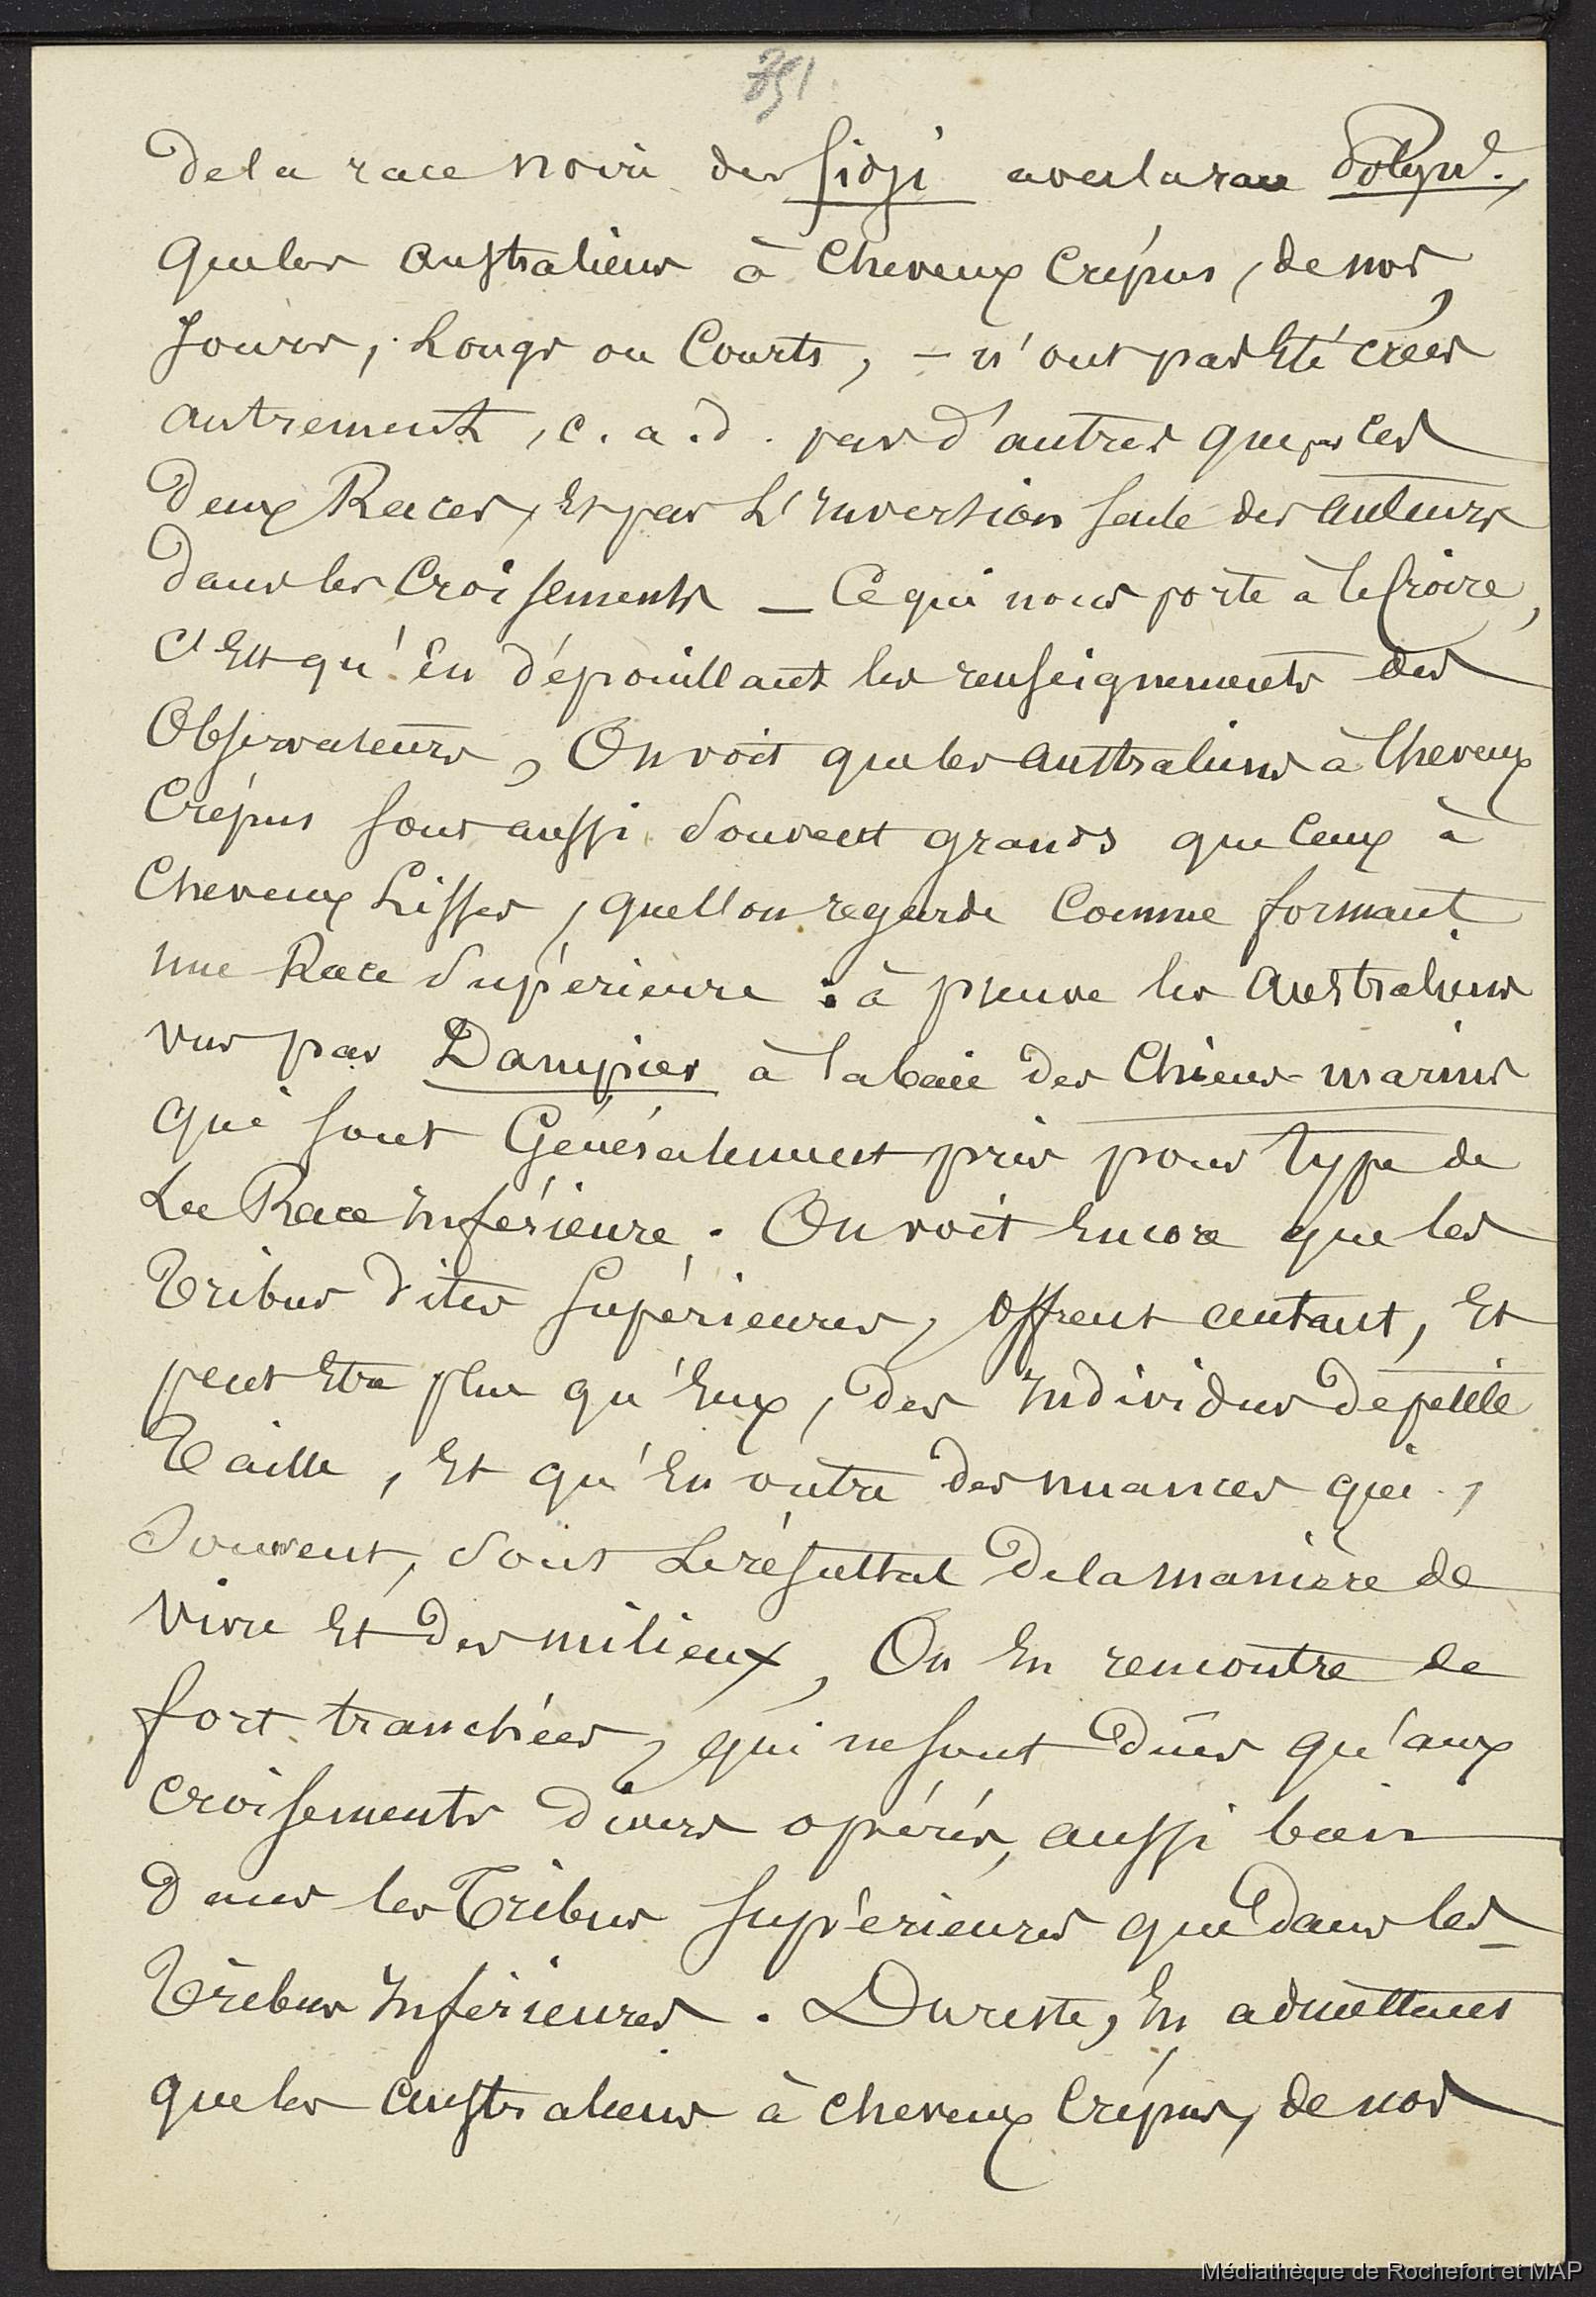 351
de la race noire des fidji avec la race Polyn.e,
que les australiens à Cheveux Crépus, de nos
Jours, Longs ou Courts, – n'ont pas Eté créés
autrement, c. a. d. par d'autres que par ces
deux Races, Et par L'Inversion seule des auteurs
dans les Croisements — Ce qui nous porte à le Croire,
c'Est qu'en dépouillant les renseignements des
Observateurs, On voit que les australiens à Cheveux
Crépus sont aussi souvent grands que Ceux à
Cheveux Lisses, que l'on regarde Comme formant
une Race supérieure : à preuve les australiens
vus par Dampier à la baie des Chiens-marins
qui sont Généralement pris pour type de
La Race Inférieure. On voit Encore que les
Tribus dites supérieures, offrent autant, Et
peut Etre plus qu'Eux, des Individus de petite
Taille, Et qu'En outre des nuances qui,
souvent, sont Le résultat de la manière de
vivre Et des milieux, On En rencontre de
fort tranchées, qui ne sont dûes qu'aux
croisements divers opérés, aussi bien
dans les Tribus supérieures que dans les
Tribus Inférieures. Du reste, En admettant
que les australiens à cheveux Crépus, de nos
Médiathèque de Rochefort et MAP